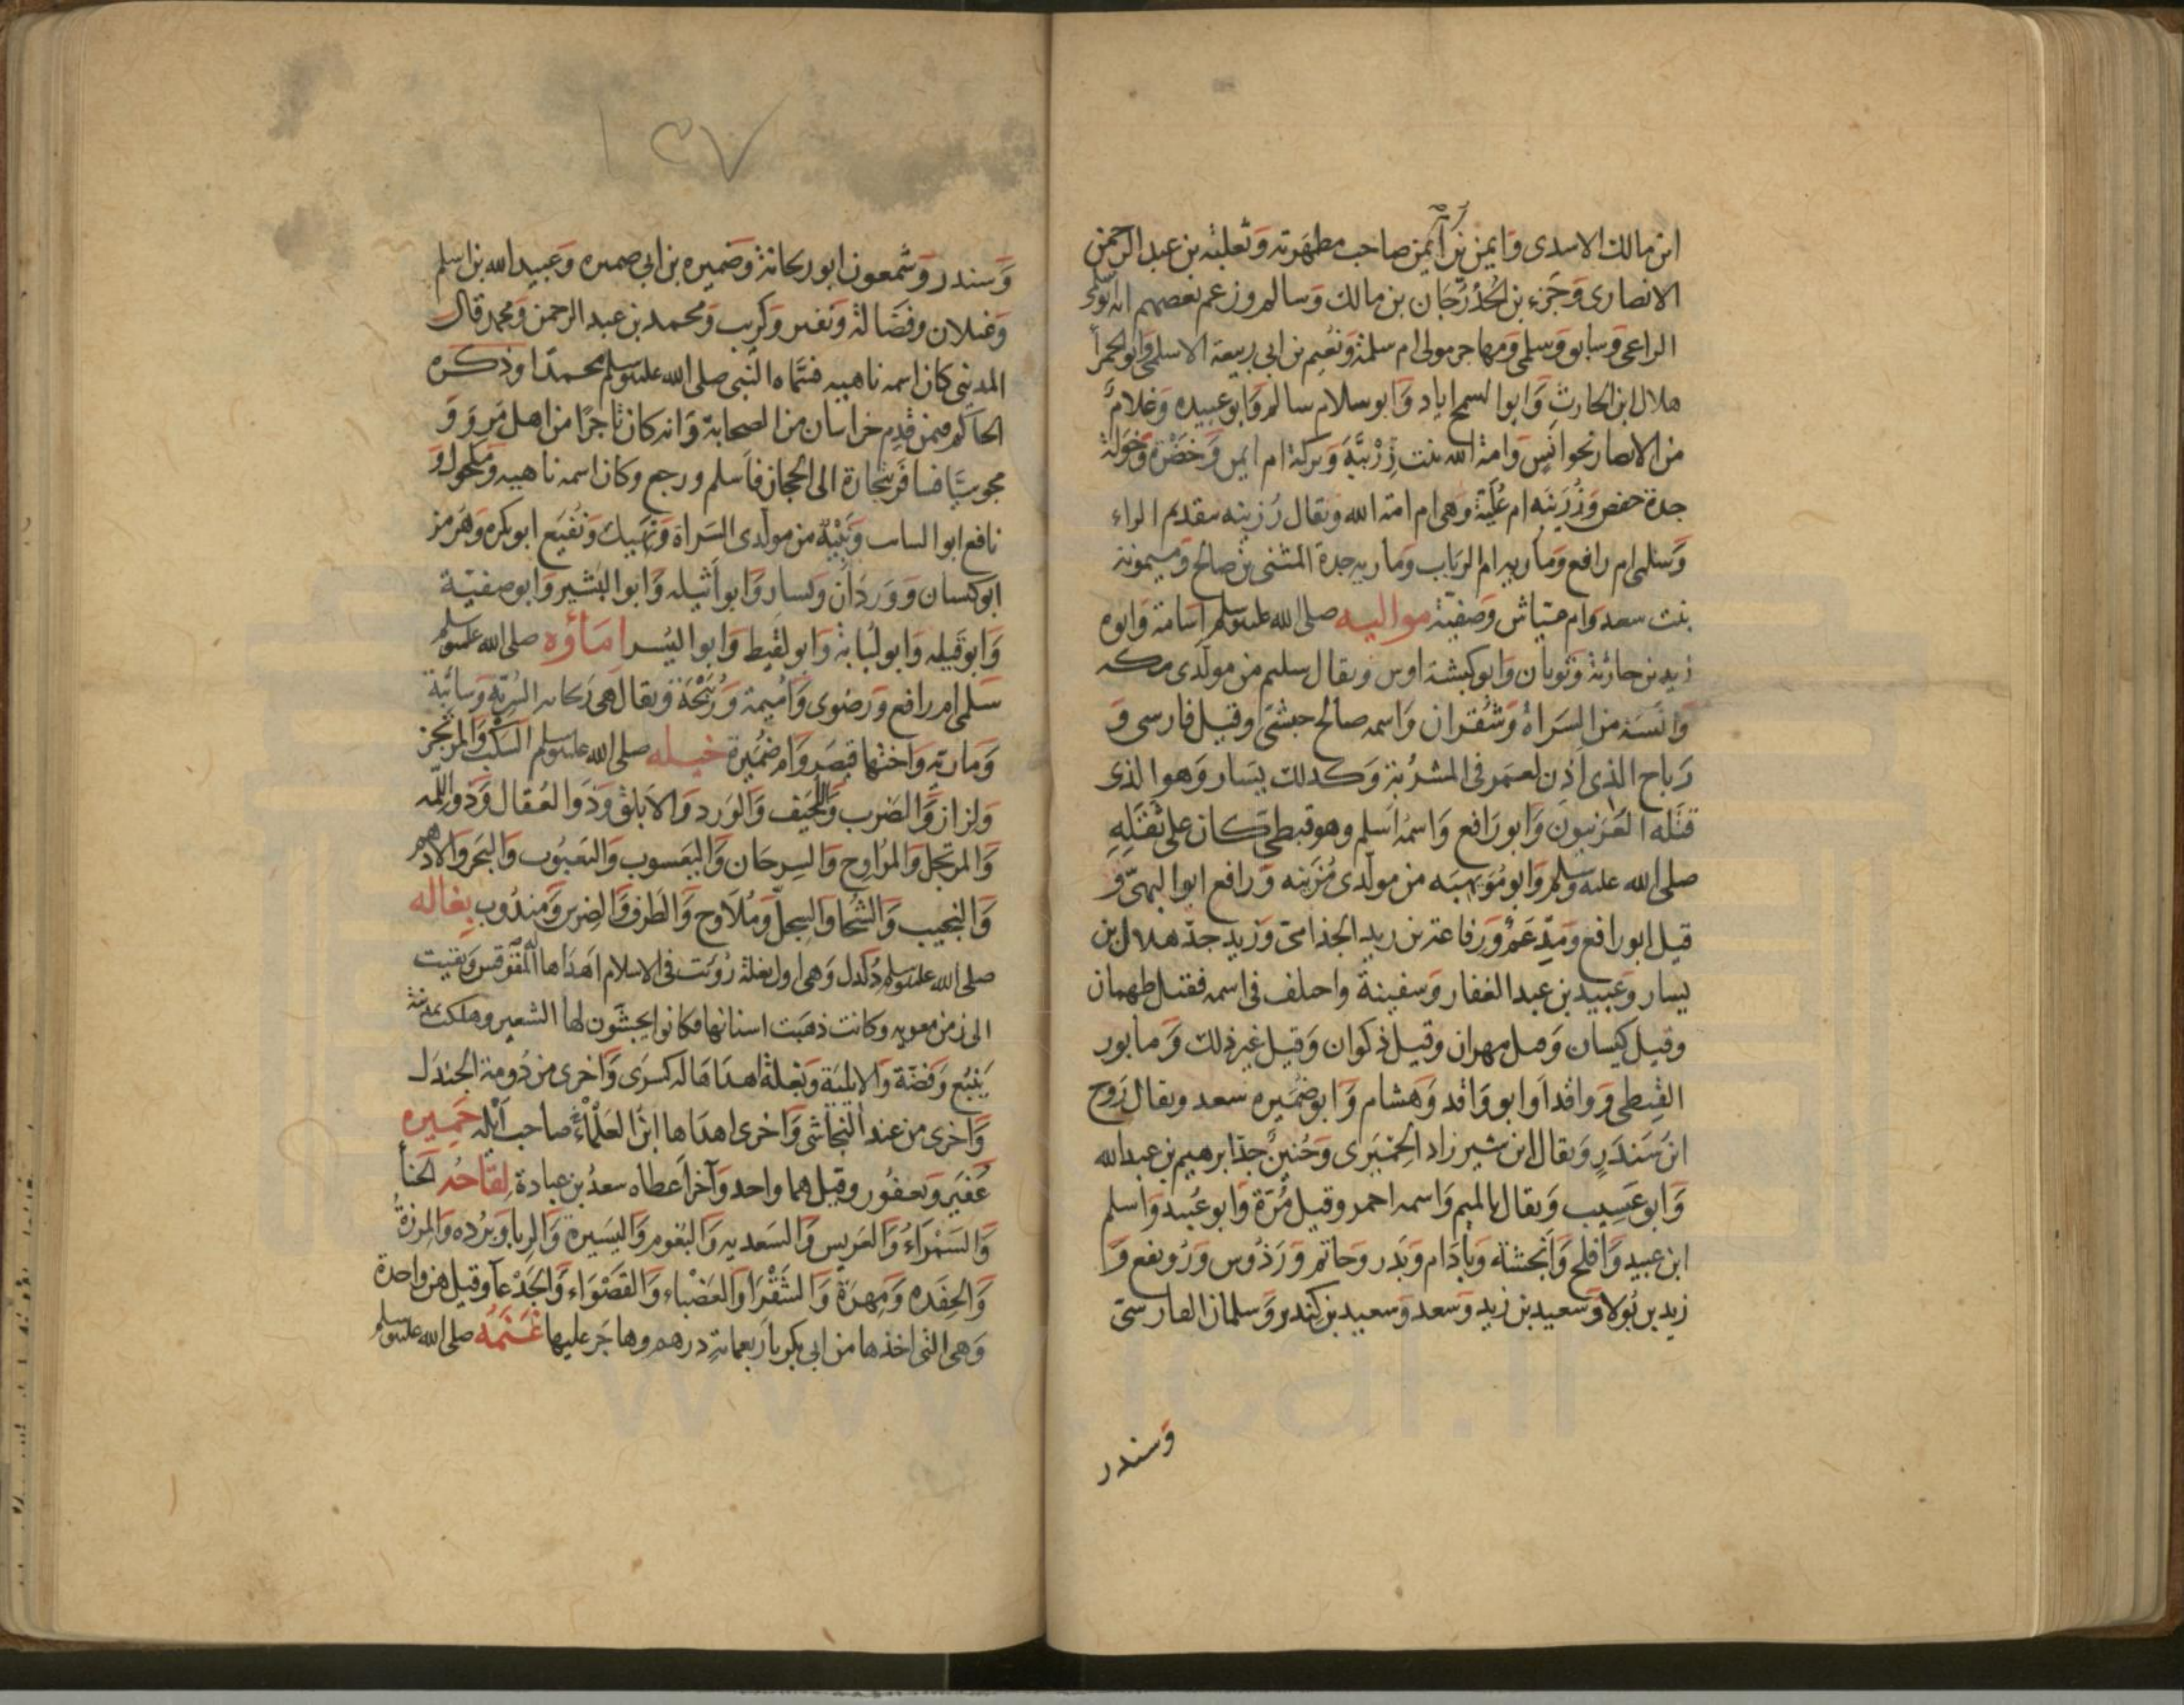 ابن مالك الاسدى وايمن بن ام ايمن صاحب مطهرته وثعلبة بن عبد الرحمن
الانصارى وجزء بن الحدرجان بن مالك وسالم وزعم بعضهم انه ابو سلمى
الراعى وسابق وسلمى ومهاجر مولى ام سلمة ونعيم بن ابى ربيعة الاسلمى وابو الحمرا
هلال ابن الحارث وابو السمح اياد وابو سلام سالم وابو عبيده وغلام
من الانصار نحو انس وامة الله بنت رزينة وبركة ام ايمن وخضرة وخولة
جدة حفص ورزينه ام عليلة وهى ام امة الله ويقال رزينه بتقديم الراء
وسلمى ام رافع وماريه ام الرباب وماريه جدة المثنى بن صالح وميمونة
بنت سعد وام عياش وصفية مواليه صلى الله عليه وسلم اسامة وابوه
زيد بن حارثة وثوبان وابو كبشة اوس ويقال سليم من مولدى مكه
وانسة من السراة وشقران واسمه صالح حبشى وقيل فارسى و
رباح الذى اذن لعمر فى المشربة وكذلك يسار وهو الذى
قتله العرنيون وابو رافع واسمه اسلم وهو قبطى كان على ثقله
صلى الله عليه وسلم وابو مويهبه من مولدى مزينه ورافع ابو البهى و
قيل ابو رافع ومدعم ورفاعة بن زيد الجذامى وزيد جد هلال بن
يسار وعبيد بن عبد الغفار وسفينة واختلف فى اسمه فقيل طهمان
وقيل كيسان وقيل مهران وقيل ذكوان وقيل غير ذلك ومابور
القبطى وواقد او ابو واقد وهشام وابو ضميره سعد ويقال روح
ابن سندر ويقال ابن شيرزاد الحميرى وحنين جد ابرهيم بن عبد الله
وابو عسيب ويقال بالميم واسمه احمر وقيل مرة وابو عبيد واسلم
ابن عبيد وافلح وانجشة وباذام وبدر وحاتم وردوس ورويفع و
زيد بن بولا وسعيد بن زيد وسعد وسعيد بن كندير وسلمان الفارسى
وسندر
١٣٧
وسندر وشمعون ابو ريحانة وضميره بن ابى ضميره وعبيد الله بن اسلم
وغيلان وفضالة ونفير وكريب ومحمد بن عبد الرحمن ومحمد قال
المدينى كان اسمه ناهيه فسماه النبى صلى الله عليه وسلم محمدا وذكره
الحاكم فيمن قدم خراسان من الصحابة وانه كان تاجرا من اهل مرو و
مجوسيا فسافر بتجارة الى الحجاز فاسلم ورجع وكان اسمه ناهيه ومكحول و
نافع ابو السائب ونبيه من مولدى السراة ونهيك ونفيع ابو بكره وهرمز
ابو كيسان ووردان ويسار وابو اثيله وابو البشير وابو صفية
وابو قيله وابو لبابة وابو لقيط وابو اليسر اماؤه صلى الله عليه وسلم
سلمى ام رافع ورضوى واميمة وربيحة ويقال هى ريحانه السرية وسائبة
ومارية واختها قيصر وام ضميرة خيله صلى الله عليه وسلم السكب والمرتجز
ولزاز والضرب واللحيف والورد والابلق وذو العقال وذو اللمه
والمرتجل والمراوح والسرحان واليعسوب واليعبوب والبحر والادهم
والنجيب والشحا والسجل وملاوح والطرف والضرس ومندوب بغاله
صلى الله عليه وسلم دلدل وهى اول بغلة رؤيت فى الاسلام اهداها المقوقس وبقيت
الى زمن معويه وكانت ذهبت اسنانها فكانوا يجشون لها الشعير وهلكت بمدينة
ينبع وفضة والايلية وبغلة اهداها له كسرى واخرى من دومة الجندل
واخرى من عند النجاشى واخرى اهداها ابن العلماء صاحب ايله حميره
عفير ويعفور وقيل هما واحد وآخر اعطاه سعد بن عبادة لقاحه الحنا
والسمراء والعريس والسعديه والبغوم واليسيرة والريا وبرده والمرزة
والحفده ومهرة والشقرا والعضباء والقصواء والجدعا وقيل هن واحدة
وهى التى اخذها من ابى بكر باربعماية درهم وهاجر عليها غنمه صلى الله عليه وسلم